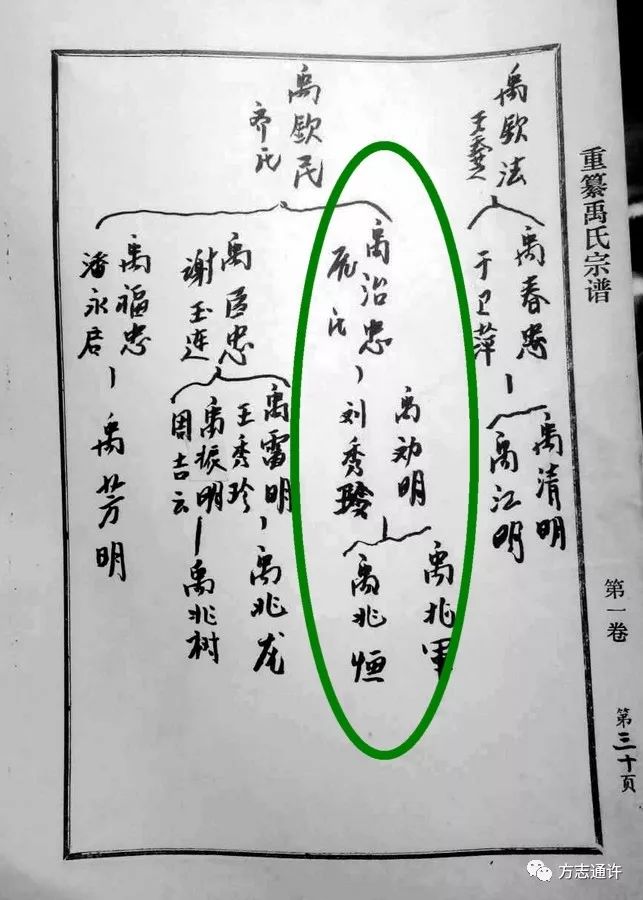 重纂禹氏宗谱
第一卷
第三十页
禹欽法
禹春忠
于卫萍
禹清明
禹江明
禹欽民
齐氏
禹治忠
禹効明
刘秀
禹兆军
禹兆恒
禹臣忠
谢玉莲
禹雷明
王秀珍
禹兆龙
禹振明
周吉云
禹兆树
禹福忠
潘永君
禹芳明
方志通许